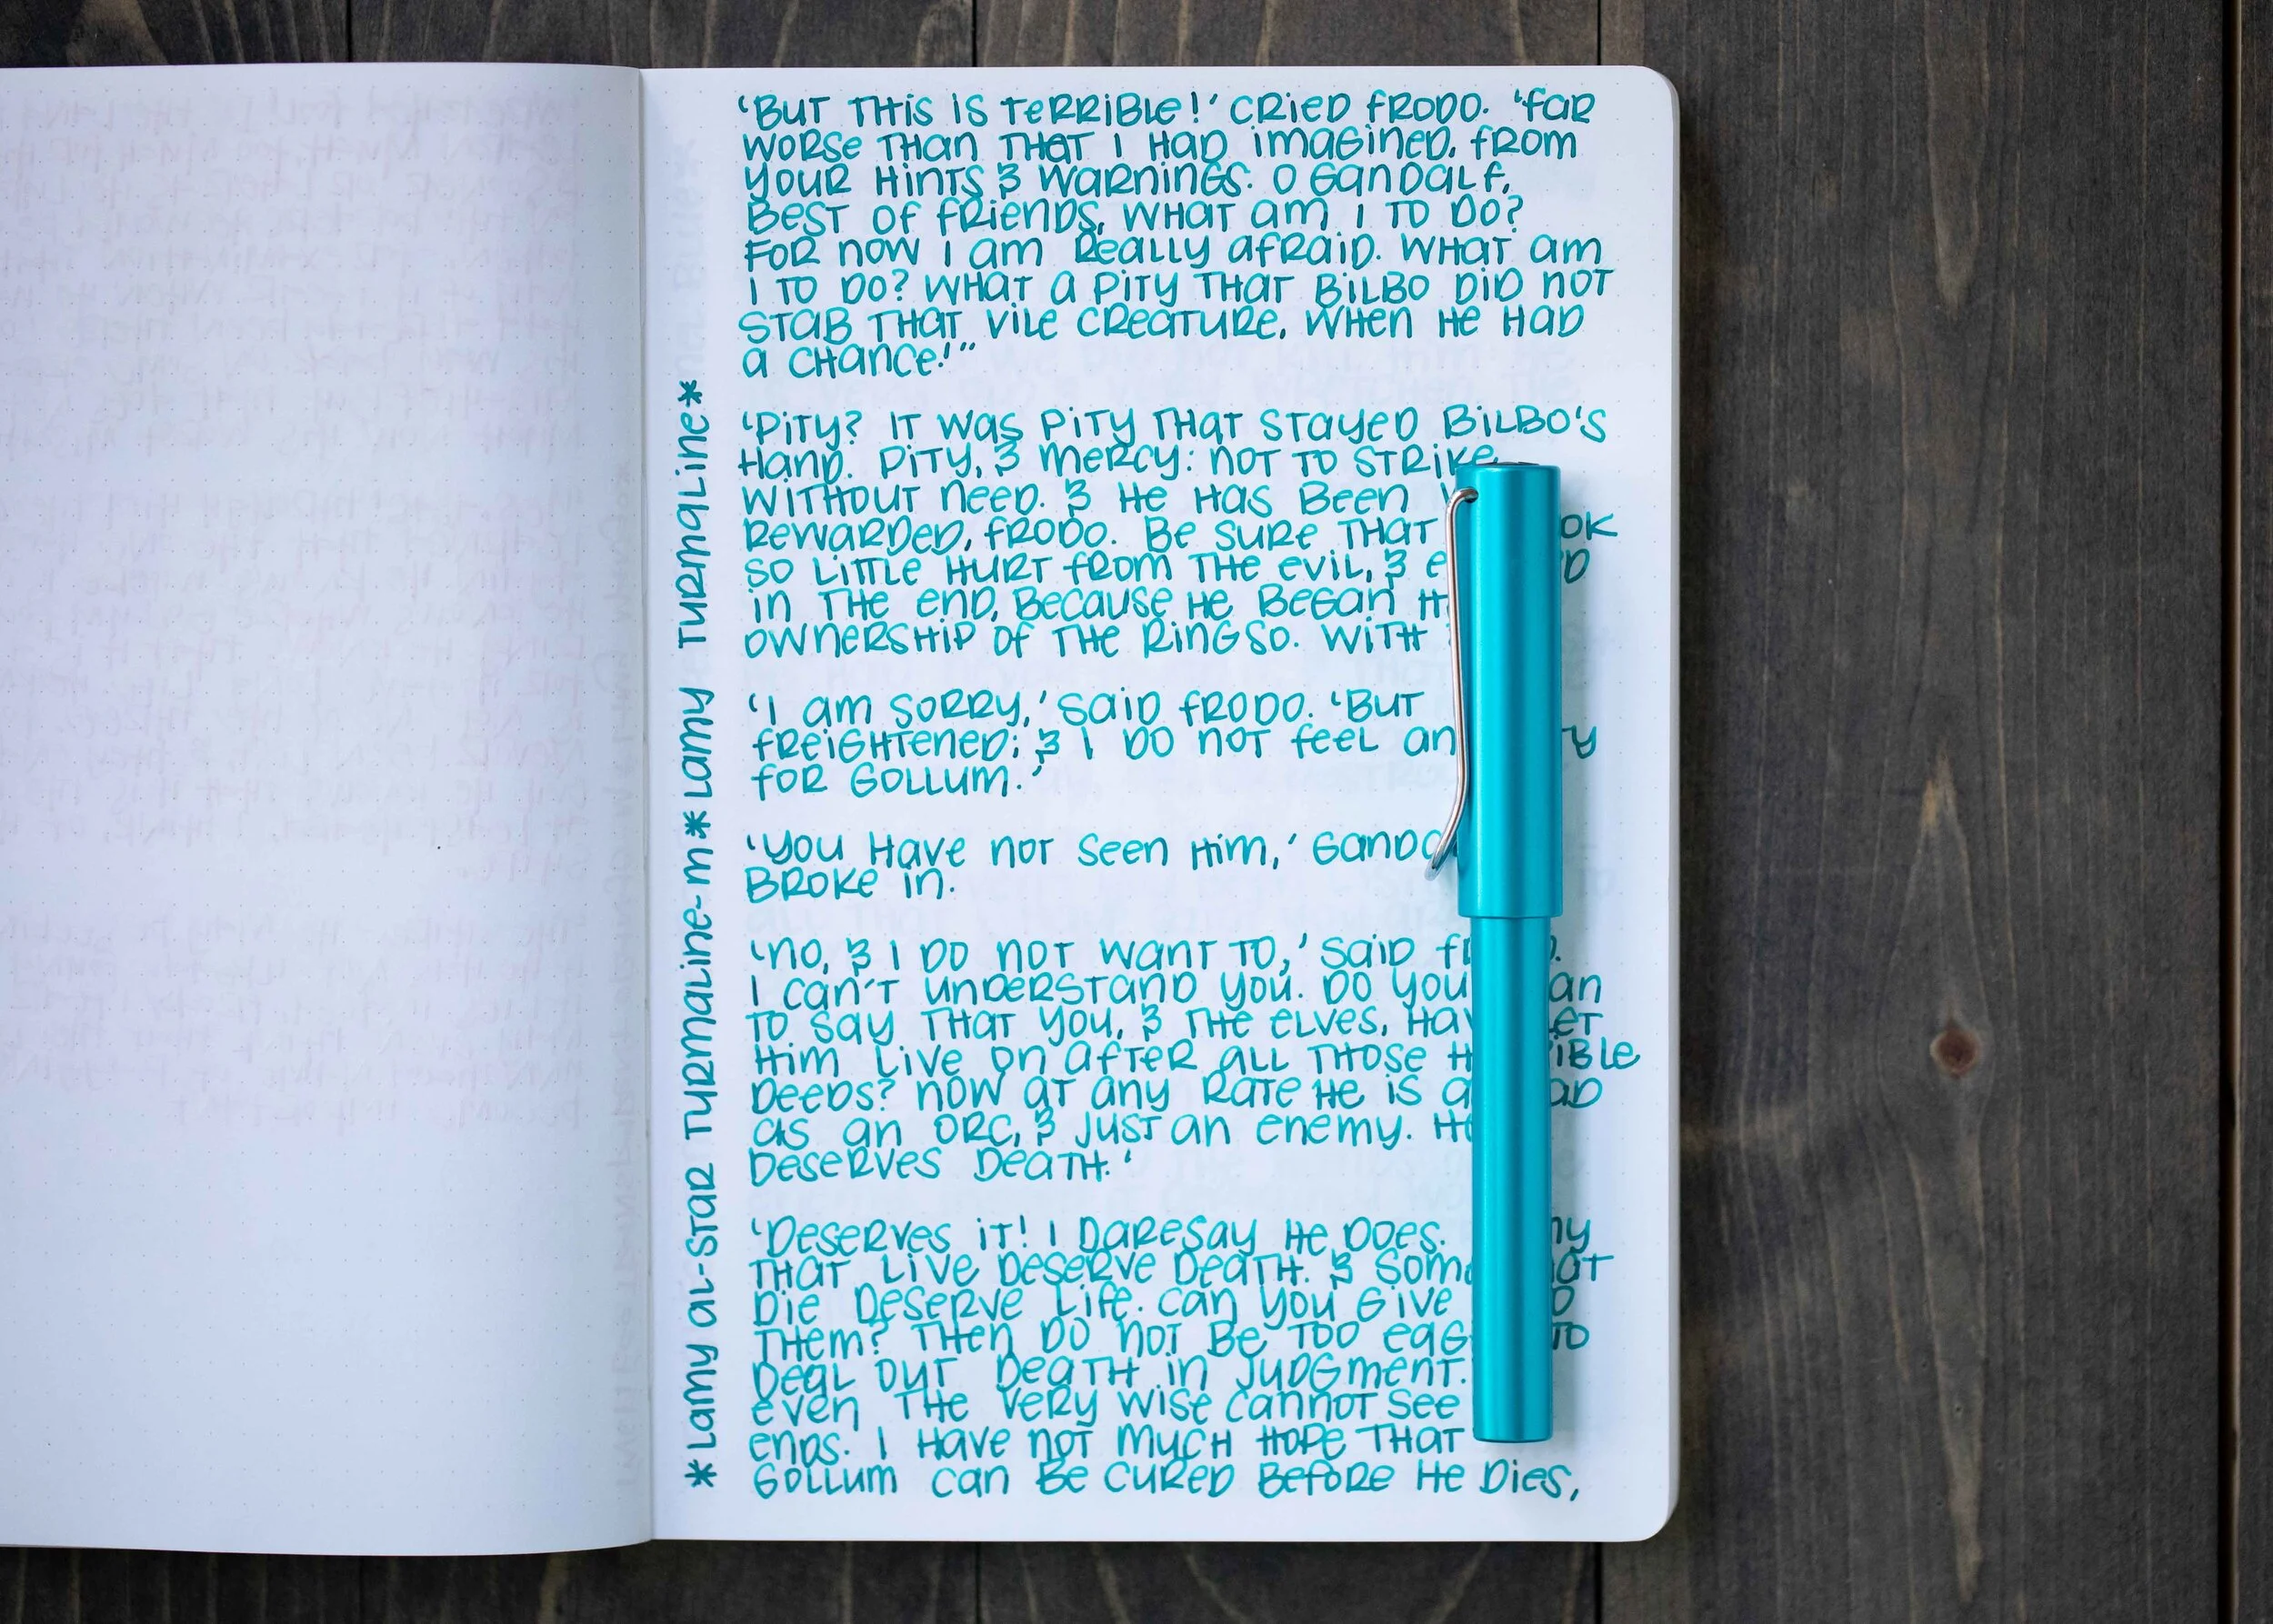 *Lamy al-star Turmaline-m*Lamy Turmaline*
'But this is terrible!' cried Frodo. 'Far
worse than that I had imagined, from
your hints & warnings. O Gandalf,
best of friends, what am I to do?
For now I am really afraid. What am
I to do? What a pity that Bilbo did not
stab that vile creature, when he had
a chance!"
'Pity? It was pity that stayed Bilbo's
hand. Pity, & mercy: not to strike
without need. & he has been
rewarded, Frodo. Be sure that
so little hurt from the evil, &
in the end, because he began
ownership of the Ring so. With
'I am sorry,' said Frodo. 'But
freightened; & I do not feel
for Gollum.'
'You have not seen him,'
broke in.
'No, & I do not want to,' said
I can't understand you. Do you
to say that you, & the elves,
him live on after all those
deeds? Now at any rate he is
as an orc, & just an enemy.
deserves death.'
'Deserves it! I daresay he does.
that live deserve death. &
die deserve life. Can you give
them? Then do not be too
deal out death in judgment.
even the very wise cannot see
ends. I have not much hope that
Gollum can be cured before he dies,